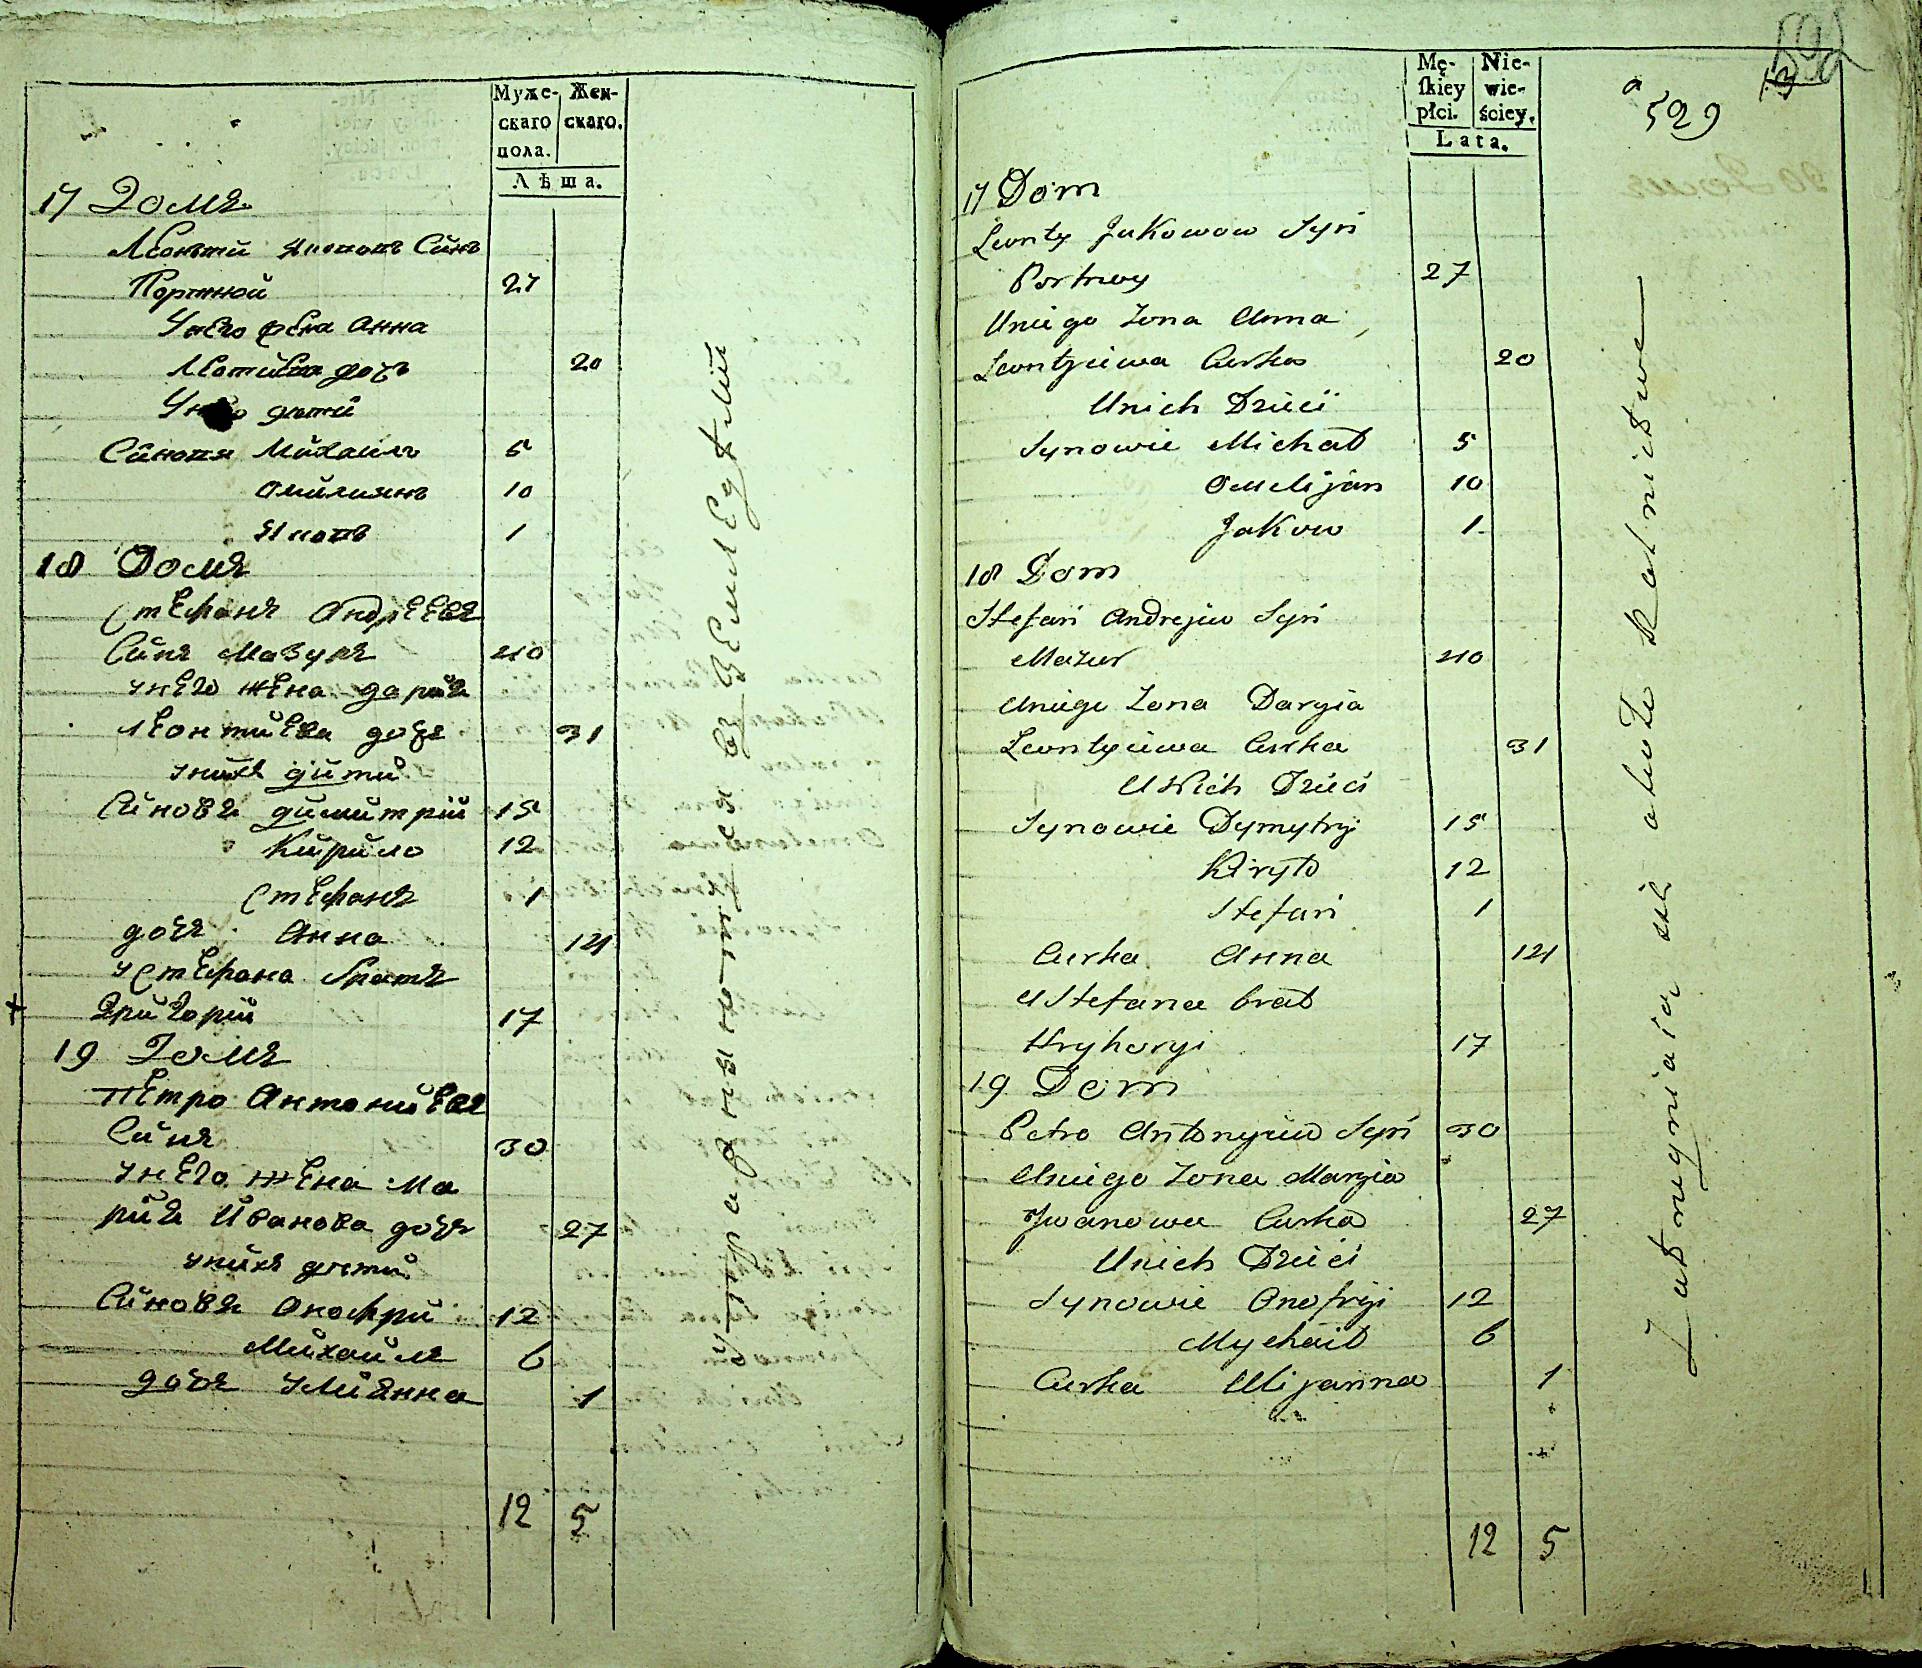 Муже-
скаго
пола.
Жен-
скаго.
Лѣта.
17 Домъ
Леонтий Якововъ Синъ
Портной 27
Унего жена Анна
Леотиева дочъ 20
дѣтй
Синовя Михаилъ 5
Омилиянъ 10
Яковъ 1
18 Домъ
Стефанъ Андреевъ
Синъ Мазуръ 40
унего жена дария
леонтиева дочъ 31
унихъ дити
Синовъ димитрій 15
Кирило 12
Стефанъ 1
дочъ Анна 14
у Стефана братъ
+ Григорій 17
19 Домъ
Петро Антониевъ
Синъ 30
унего жена Ма
рия Иванова дочъ 27
унихъ дети
Синовъ Онофри 12
Михаилъ 6
дочъ Улиянна 1
12 5
Упражняютъся въ Земледѣлии
Mę-
ſkiey
płci.
Nie-
wie-
ściey.
Lata.
529
13
17 Dom
Lewnty Jakowow Syn
Portnoy 27
Uniego Zona Anna
Lewntyiewa Curka 20
Unich Dzieci
Synowie Michał 5
Omelijan 10
Jakow 1
18 Dom
Stefan Andrejew Syn
Mazur 40
Uniego Zona Daryia
Lewntyiewa Curka 31
Unich Dzieci
Synowie Dymytry 15
Kiryło 12
Stefan 1
Curka Anna 14
U Stefana brat
Hryhoryi 17
19 Dom
Petro Antonyiew Syn 30
Uniego Zona Maryia
Jwanowa Curka 27
Unich Dzieci
Synowie Onofryi 12
Mychaił 6
Curka Ulijanna 1
12 5
Zatrudniaią się około Rolnictwa